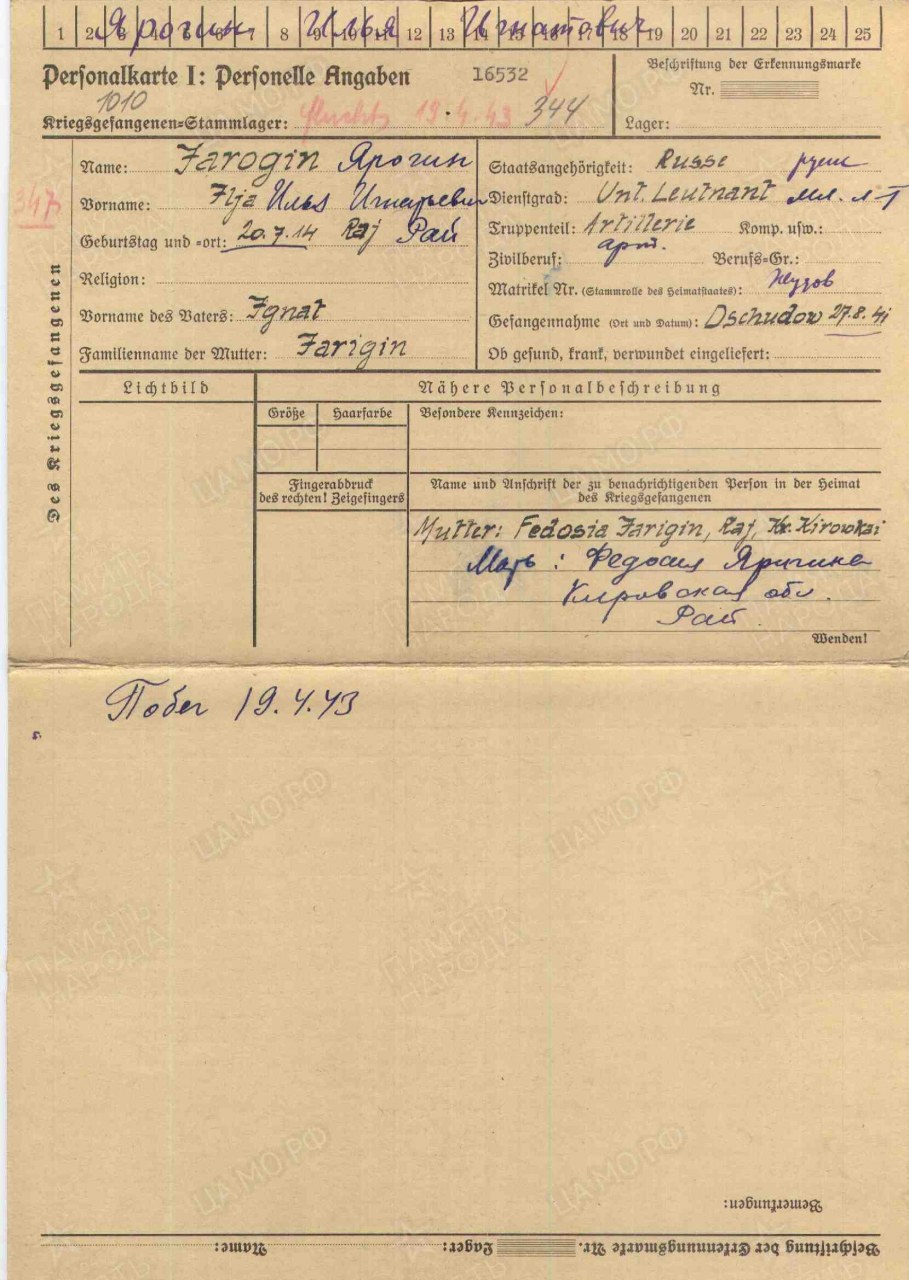 1 2 3 4 5 6 7 8 9 10 11 12 13 14 15 16 17 18 19 20 21 22 23 24 25
Ярогин Илья Игнатович
Personalkarte I: Personelle Angaben 16532
Beschriftung der Erkennungsmarke
Nr.
1010
Kriegsgefangenen=Stammlager: Flucht 19.4.43 344
Lager:
347
Des Kriegsgefangenen
Name: Jarogin Ярогин
Vorname: Ilja Илья Игнатьевич
Geburtstag und =ort: 20.7.14 Raj Рай
Religion:
Vorname des Vaters: Ignat
Familienname der Mutter: Jarigin
Staatsangehörigkeit: Russe
Dienstgrad: Unt. Leutnant мл. л-т
Truppenteil: Artillerie Komp. usw.:
арт.
Zivilberuf: Berufs=Gr.:
Matrikel Nr. (Stammrolle des Heimatstaates):
Gefangennahme (Ort und Datum): Dschudow 27.8.41
Ob gesund, krank, verwundet eingeliefert:
Lichtbild
Nähere Personalbeschreibung
Größe Haarfarbe Besondere Kennzeichen:
Fingerabdruck
des rechten! Zeigefingers
Name und Anschrift der zu benachrichtigenden Person in der Heimat
des Kriegsgefangenen
Mutter: Fedosia Jarigin, Raj, Kr. Kirowkai
Мать: Федосия Яригина
Кировская обл.
Рай.
Wenden!
Побег 19.4.43
Bemerkungen:
Beschriftung der Erkennungsmarke Nr. Lager: Name:
ЦАМО.РФ
ПАМЯТЬ
НАРОДА